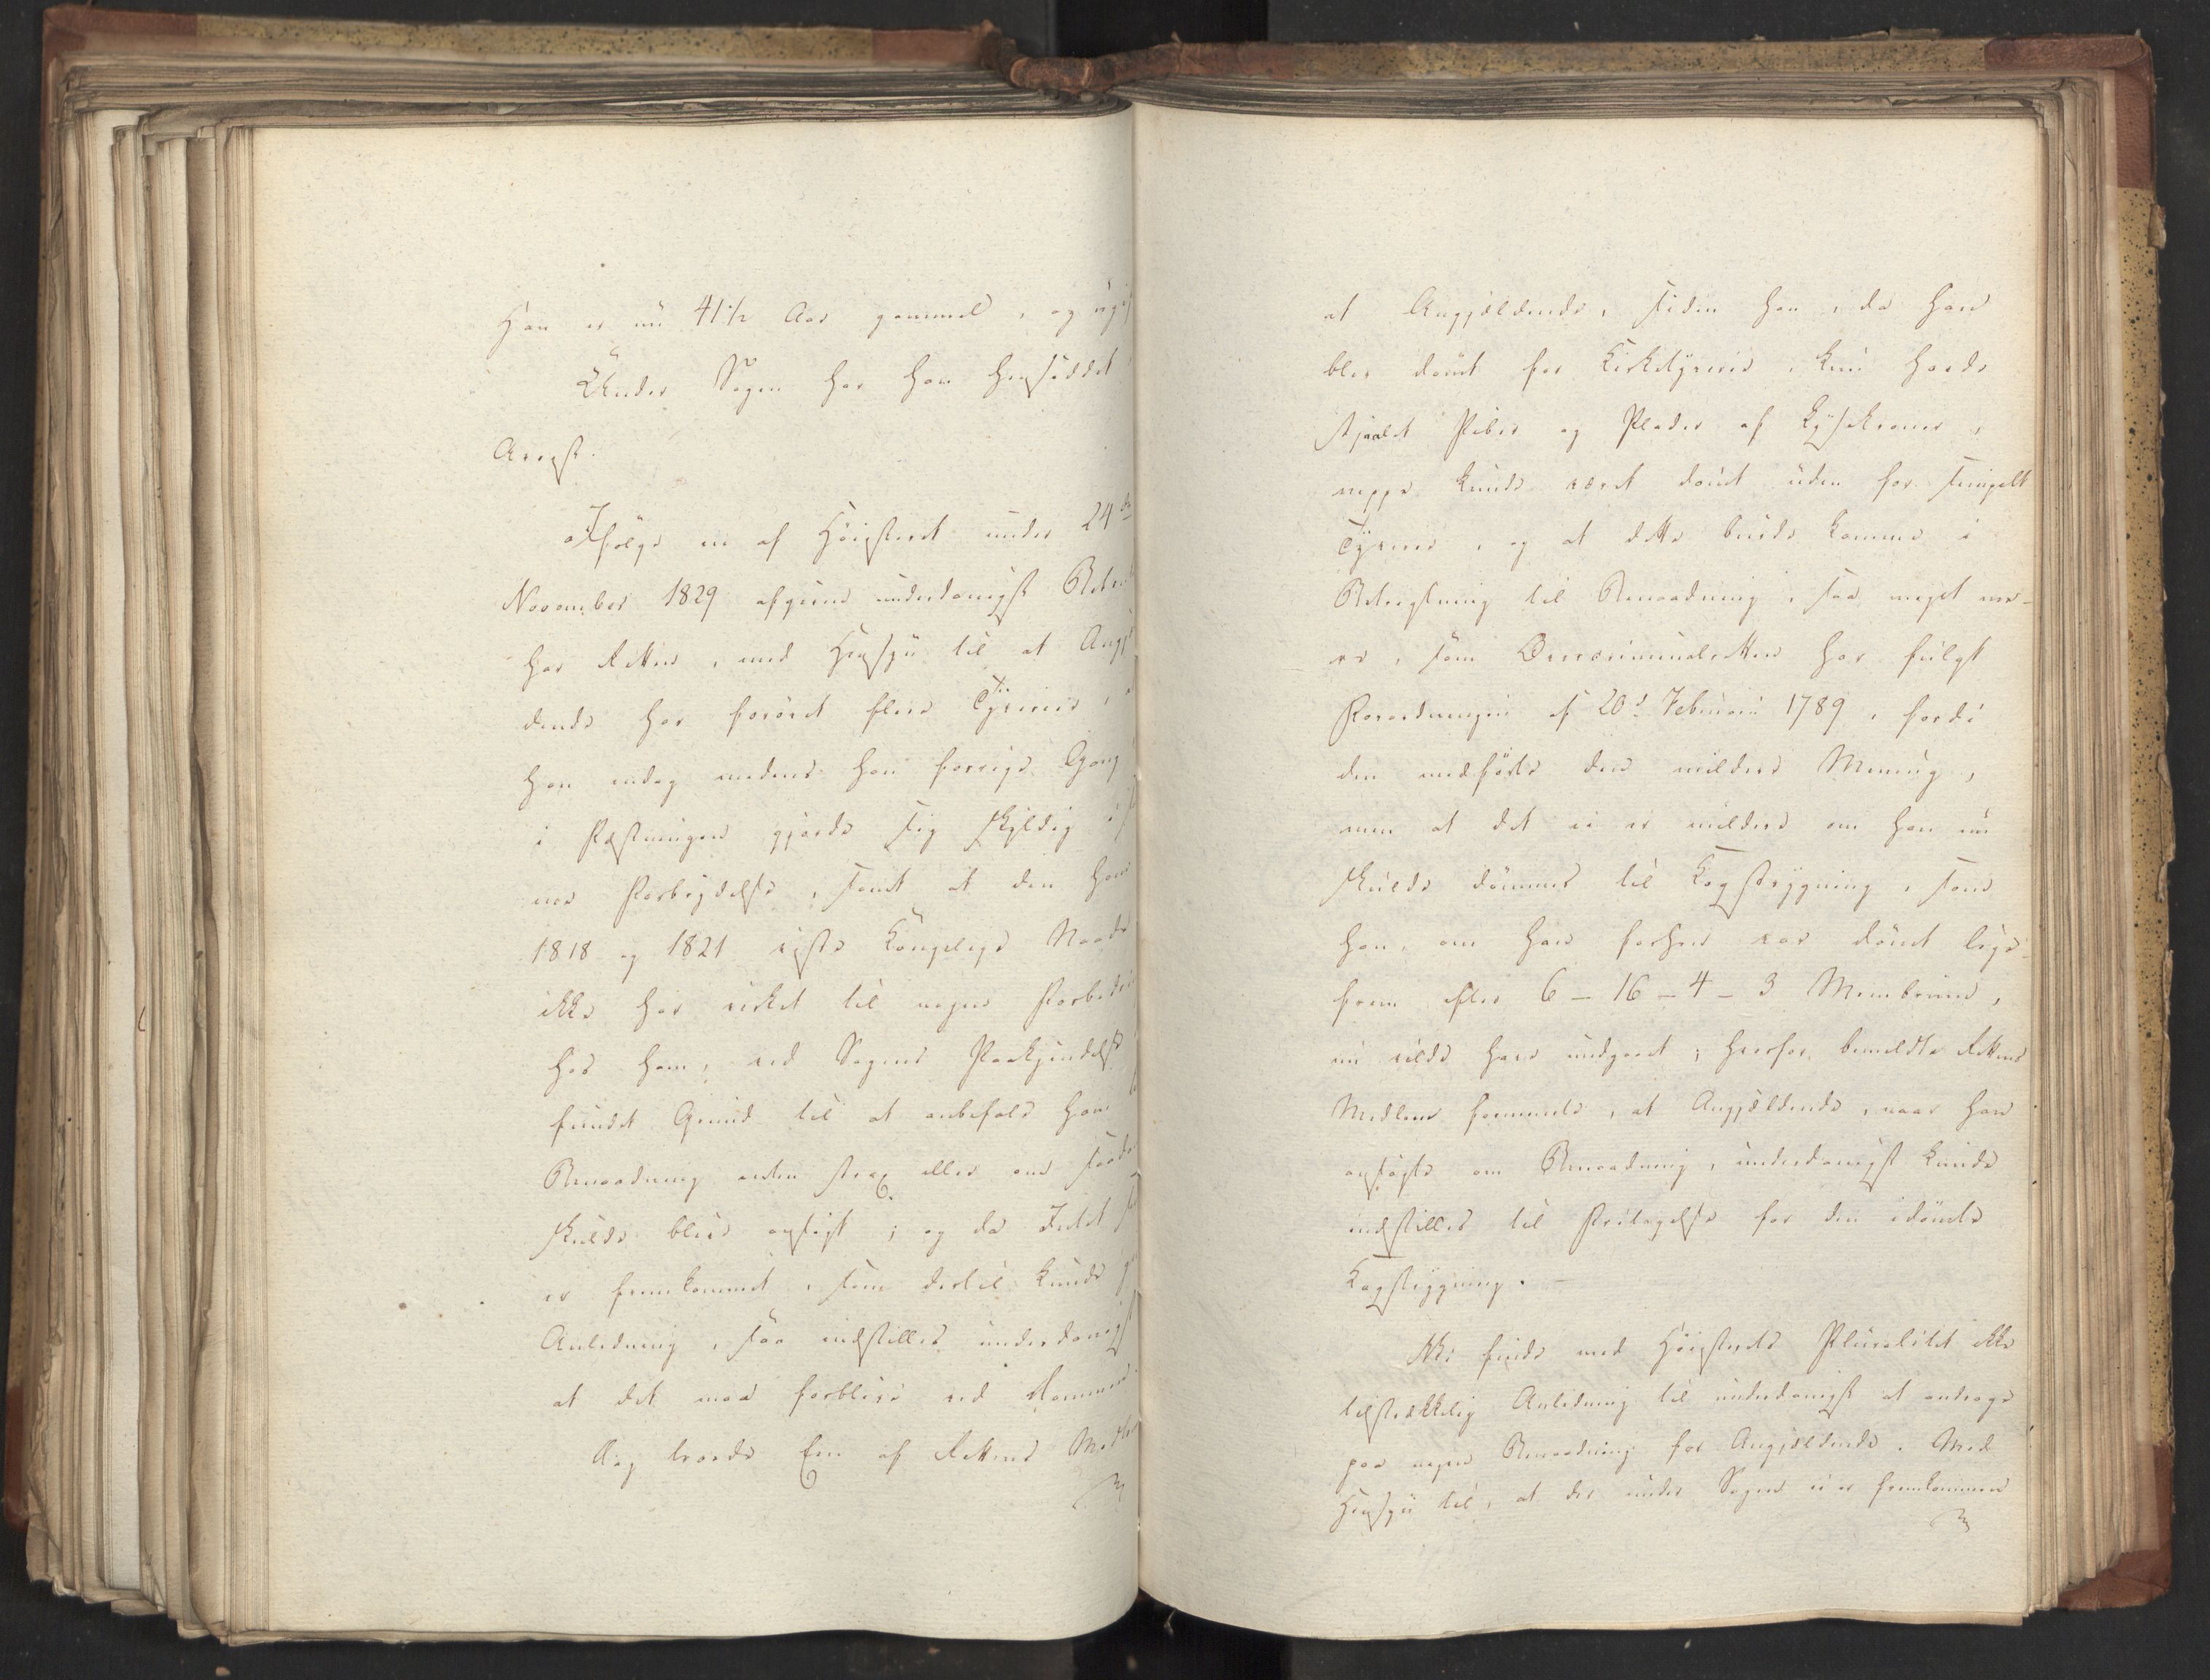 Han er nu 41 1/2 Aar gammel, og ugif
Under Sagen har han hensiddet
Arrest.
Ifølge en af Høiesteret under 24de
November 1829 afgiven underdanigst Betæn
har Retten, med Hensyn til at Angj
dende har forøvet flere Tyverier,
han endog medens han forrige Gang
i Fæstningen gjorde sig skyldig i
nes Forbrydelse, samt at den ham
1818 og 1821 viste Kongelige Naade
ikke har virket til nogen Forbedri
hos ham, ved Sagens Paakjendelse
fundet Grund til at anbefale ham
Benaadning enten strax eller om saada
skulde blive ansøgt; og da Intet
er fremkommet, som dertil kunde
Anledning, saa indstilles underdanigst
at det maa forblive ved Dommen.
Dog troede Een af Rettens Medle
at Angjældende, siden han, da han
blev dømt for Kirketyverie, kun havde
stjaalet Piber og Plader af Lysekroner,
neppe kunde været dømt uden for simpelt
Tyverie, og at dette burde komme i
Betragtning til Benaadning, saa meget me-
re, som Overcriminalretten har fulgt
Forordningen af 20d Februarii 1789, fordi
den medførte den mildere Mening,
men at det ei er mildere om han nu
skulde dømmes til Kagstrygning, som
han, om han forhen var dømt lige-
frem efter 6-16-4-3 Membrum,
nu vilde have undgaaet; hvorfor bemeldte Rettens
Medlem formente, at Angjældende, naar han
ansøgte om Benaadning, underdanigst kunde
indstilles til Fritagelse for den idømte
Kagstrygning. -
Vi finde med Høiesterets Pluralitet ikke
tilstrækkelig Anledning til underdanigst at andrage
paa nogen Benaadning for Angjældende. Med
Hensyn til, at der under Sagen ei er fremkommen